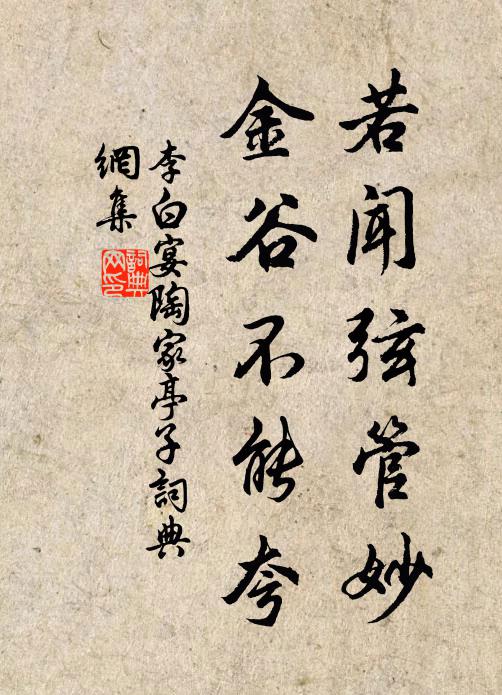 若闻弦管妙
金谷不能夸
李白宴陶家亭子詞典
網集
詞典
网印